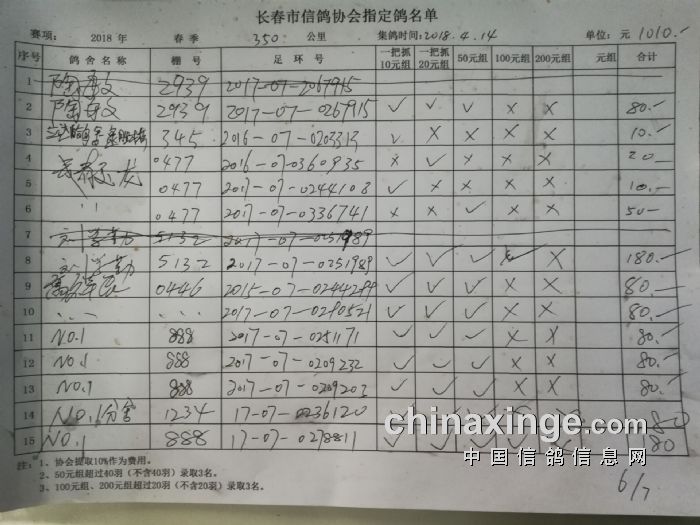 长春市信鸽协会指定鸽名单
赛项: 2018 年 春季 350 公里 集鸽时间: 2018.4.14 单位: 元 1010.-
序号 鸽舍名称 棚号 足环号 一把抓10元组 一把抓20元组 50元组 100元组 200元组 元组 合计
1 2939 2017-07-0267915
2 2939 2017-07-0267915 ✓ ✓ ✓ × × 80.-
3 345 2016-07-0203313 ✓ × × × × 10.-
4 0477 2016-07-0360935 × ✓ × × × 20-
5 0477 2017-07-0244108 ✓ × × × × 10.-
6 〃 0477 2017-07-0336741 × × ✓ × × 50-
7 刘学勤 5132 2017-07-0251989
8 刘学勤 5132 2017-07-0251989 ✓ ✓ ✓ ✓ × 180.-
9 0446 2015-07-0244289 ✓ ✓ ✓ × × 80.-
10 2017-07-0290521 ✓ ✓ ✓ × × 80.-
11 NO.1 888 2017-07-0251171 ✓ ✓ ✓ × × 80.-
12 NO.1 888 2017-07-0209232 ✓ ✓ ✓ × × 80.-
13 NO.1 888 2017-07-0209203 ✓ ✓ ✓ × × 80.-
14 NO.1分舍 1234 17-07-0236120
15 NO.1 888 17-07-0278811 180
chinaxinge.com
中国信鸽信息网
注: 1、协会提取10%作为费用。
2、50元组超过40羽(不含40羽)录取3名。
3、100元组、200元组超过20羽(不含20羽)录取3名。
6/7